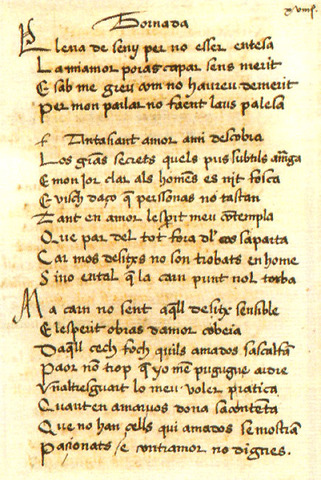 Tornada
xviii.
Plena de seny per no esser entesa
La miamor poras capar sens merit
E sab me greu com no haureu demerit
Per mon parlar no faent laus palesa
Fantasiant amor a mi descobra
Los grans secrets quels pus subtils amaga
E mon jorn clar als homens es nit fosca
E visch daço que persones no tastan
Tant en amor lesperit meu contempla
Que par del tot fora del cos saparta
Car mos desitxs no son trobats en home
Sino en tal que la carn punt nol torba
Ma carn no sent aquell desitx sensible
E lesperit obras damor cobeia
Daquell cech foch quils amados sascalfan
Paor nom trop que yo men pugugue ardre
Un altre sguart lo meu voler pratica
Quant en amarvos dona sacontenta
Que no han cells qui amados se mostran
Pacionats e contramor no dignes.